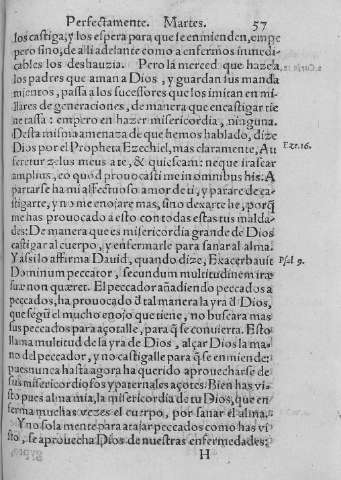 Perfectamente. Martes. 57
los castiga; y los espera para que se enmienden, empe
pero sino; de alli adelante como a enfermos incuedi
cables los deshauzia. Pero la merced que haze a
los padres que aman a Dios, y guardan sus manda
mientos, passa a los sucessores que los imitan en mi-
llares de generaciones, de manera que en castigar tie
ne tassa: empero en hazer misericordia, ninguna.
Desta misma amenaza de que hemos hablado, dize
Dios por el Propheta Ezechiel, mas claramente, Au
Eze. 16.
feretur zelus meus a te, & quiescam: neque irascar
amplius, eo quòd prouocasti me in omnibus his. A
partarse ha mi affectuoso amor de ti, y parare de ca-
stigarte, y no me enojare mas, sino dexarte he, porq̃
me has prouocado a esto con todas estas tus malda-
des: De manera que es misericordia grande de Dios
castigar al cuerpo, y enfermarle para sanar al alma.
Y assi lo affirma Dauid, quando dize, Exacerbauit
Psal 9.
Dominum peccator, secundum multitudinem iræ
suæ non quæret. El peccador añadiendo peccados a
peccados, ha prouocado d̃ tal manera la yra d̃ Dios,
que segũ el mucho enojo que tiene, no buscara mas
sus peccados para açotalle, para q̃ se conuierta. Esto
llama multitud de la yra de Dios, alçar Dios la ma-
no del peccador, y no castigalle para q̃ se enmiende:
pues nunca hasta agora ha querido aprouecharse de
sus misericordiosos y paternales açotes. Bien has vi-
sto pues alma mia, la misericordia de tu Dios, que en
ferma muchas vezes el cuerpo, por sanar el alma.
Y no solamente para atajar peccados como has vi-
sto, se aprouecha Dios de nuestras enfermedades:
H